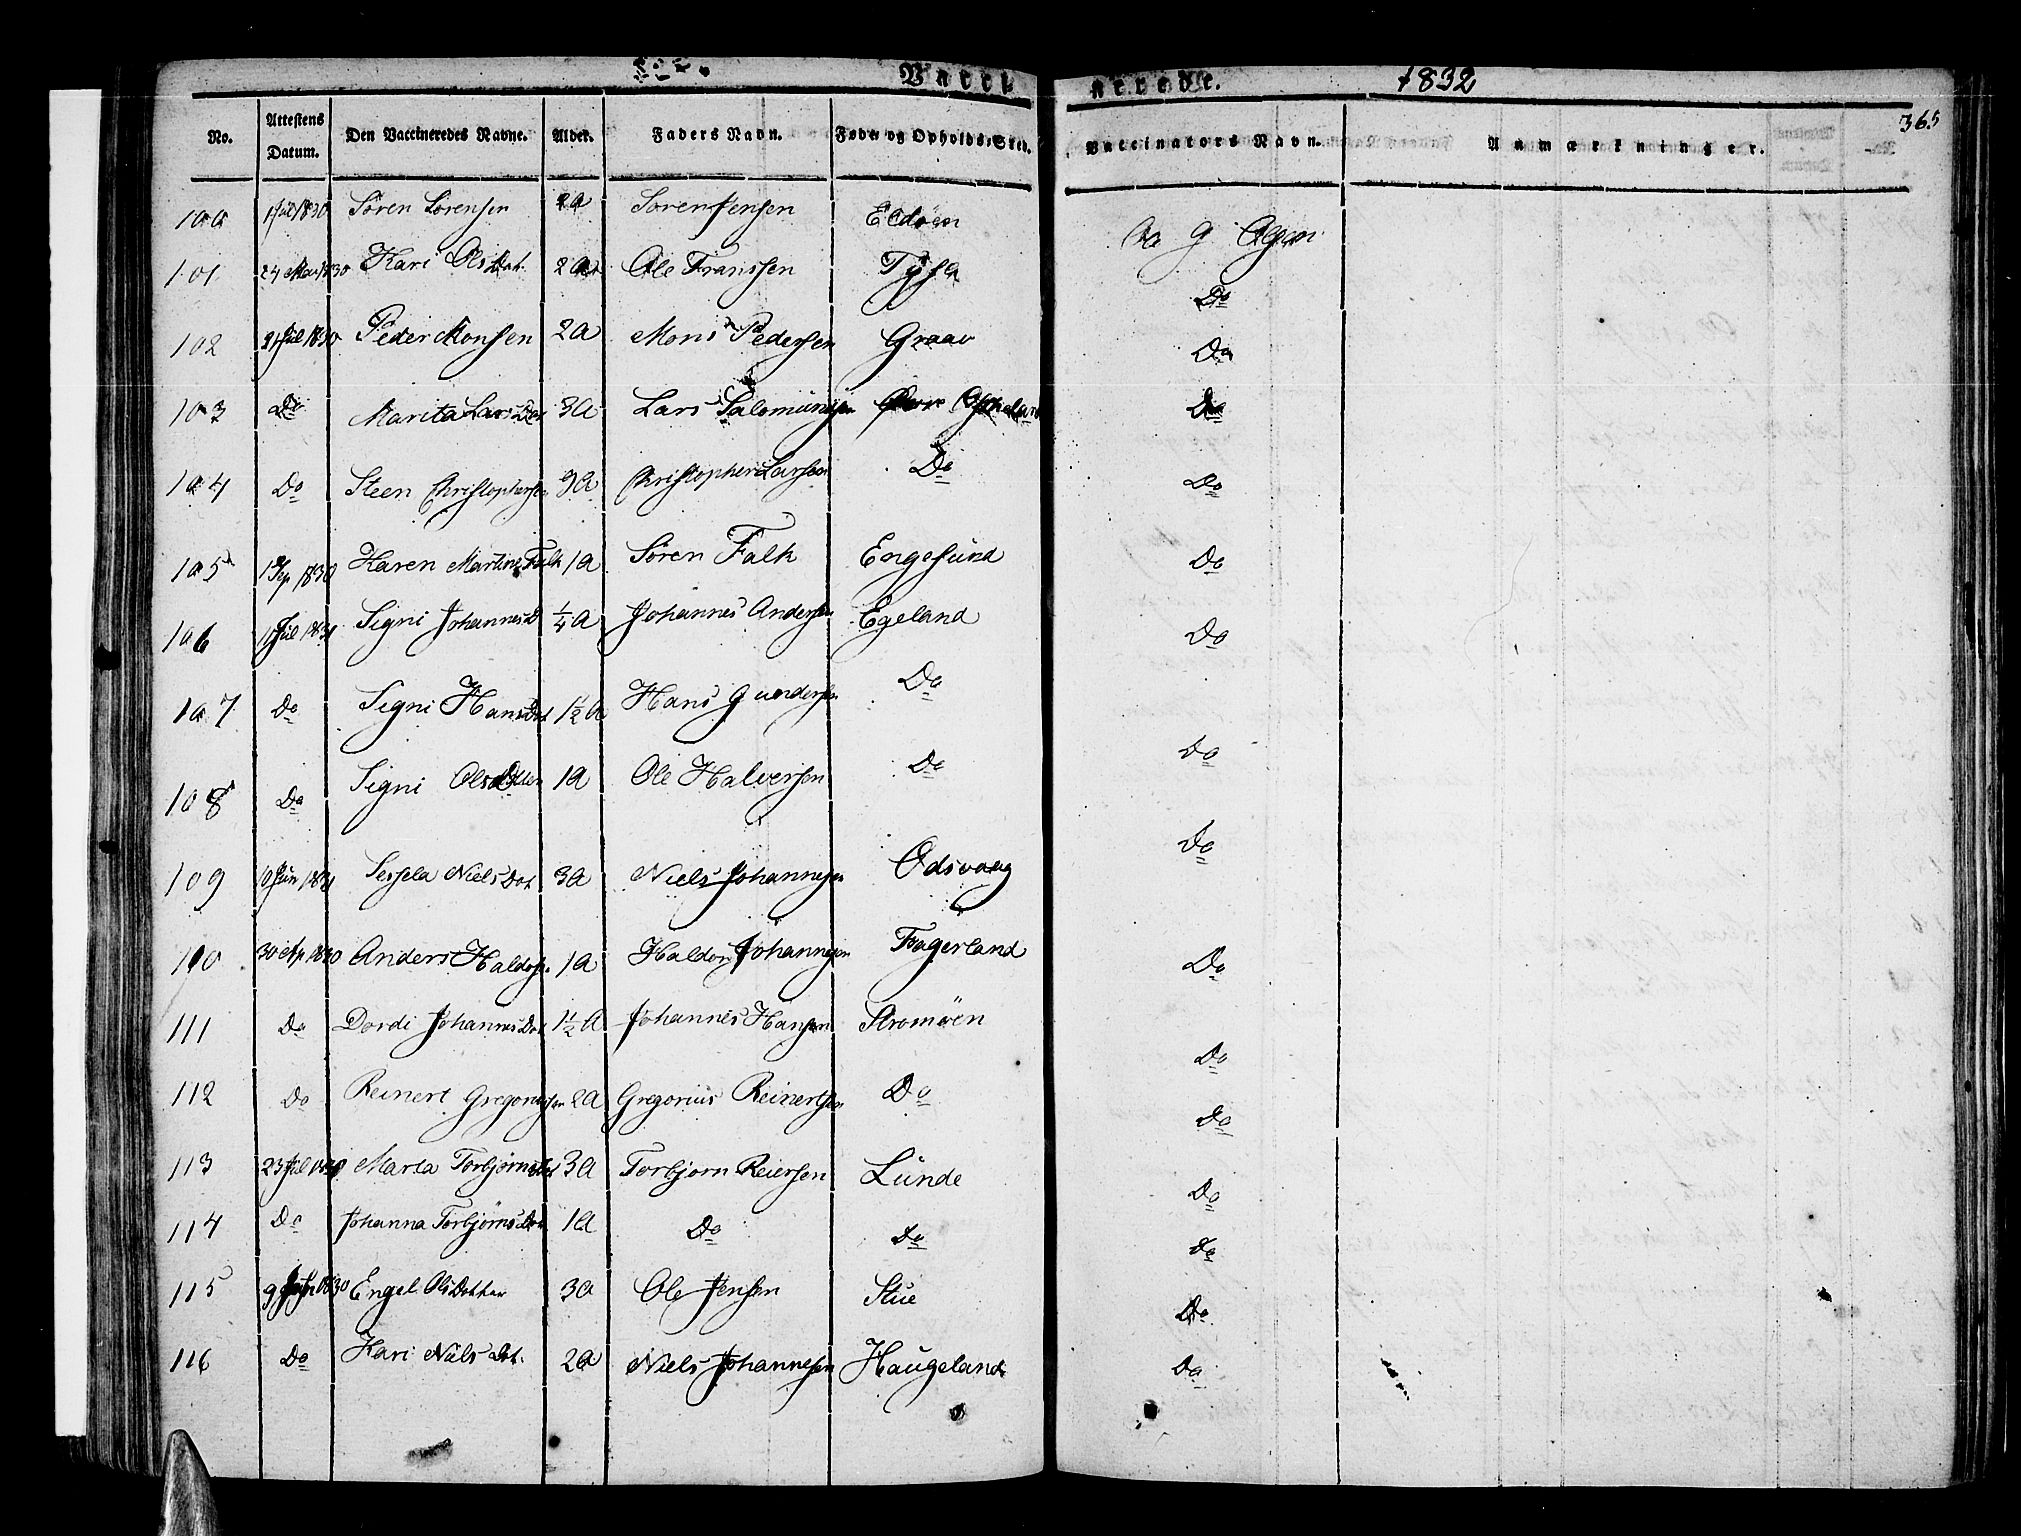 Vacci nerede. 1832
365
No. Attestens Datum. Den Vaccineredes Navne. Alder. Faders Navn. Føde- og Opholds-Sted. Vaccinators Navn. Anmærkninger.
100 1 Jul 1830 Søren Sørensen 2a Søren Jensen Eldøen
101 24 Mai 1830 Kari Olsdat. 2a Ole Franssen Tysø
102 21 Jul 1830 Peder Monsen 2a Mons Pedersen Graav Do
103 Do Marita LarsDat 3a Lars Salomunsen Do
104 Do Steen Christophersen 9a Christopher Larsen Do Do
105 1 Sep 1830 Karen Martine Falk 1a Søren Falk Engesund Do
106 Jul 1831 Signi JohannesD ¼a Johannes Andersen Egeland Do
107 Do Signi HansDat 1½a Hans Gundersen Do Do
108 Do Signi Olsdatter 1a Ole Halversen Do Do
109 10 Jun 1831 Sessela NielsDat 3a Niels Johannesen Odsvaag Do
110 30 Ap 1830 Anders Haldorsn 1a Haldor Johannesen Fagerland Do
111 Do Dordi JohannesDat 1½a Johannes Hansen Stromøen Do
112 Do Reinert Gregoriussen 2a Gregorius Reinertsen Do Do
113 23 Jul 1830 Marta TorbjørnsDat 3a Torbjørn Reiersen Lunde Do
114 Do Johanna TorbjørnsDat 1a Do do do
115 9 1830 Engel OlsDatter 3a Ole Jensen Stue Do
116 Do Kari Niels Dat. 2a Niels Johannesen Haugeland Do